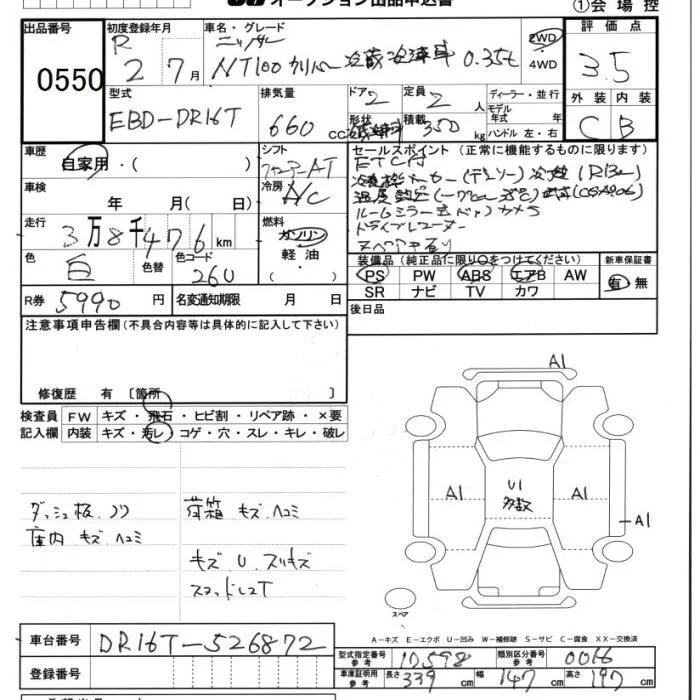 オークション出品申込書
①会場控
出品番号
0550
初度登録年月
R 2 7月
車名・グレード
ニッサン
NT100クリッパー 冷蔵冷凍車 0.35t
2WD
4WD
評価点
3.5
外装 内装
C B
型式
EBD-DR16T
排気量
660 cc
ドア
2
定員
2人
形状
積載
350 kg
ディーラー・並行
モデル年式 年式
ハンドル 左・右
車歴
自家用・( )
シフト
フロアーAT
冷房
A/C
車検
年 月( )
走行
3万8千476 km
燃料
ガソリン
軽油
( )
色
白
色替
色コード
26U
R券 5990円
名変通知期限 月 日
セールスポイント (正常に機能するものに限ります)
ETC付
ルームミラー式ドラレコ カメラ
ドライブレコーダー
スペアキー有り
装備品 (純正品に限り○をつけてください)
PS PW ABS エアB AW
SR ナビ TV カワ
新車保証書
有・無
後日品
注意事項申告欄(不具合内容等は具体的に記入して下さい)
修復歴 有 〔箇所 〕
検査員記入欄
FW キズ・飛石・ヒビ割・リペア跡・×要
内装 キズ・汚レ・コゲ・穴・スレ・キレ・破レ
ダッシュ板 ノリ
庫内 キズ ヘコミ
荷箱 キズ ヘコミ
キズ U スリキズ
スタッドレスT
A1
A1
U1
多数
A1
A1
スペア
A-キズ E-エクボ U-凹み W-補修跡 S-サビ C-腐食 XX-交換済
車台番号 DR16T-526872
登録番号
型式指定番号 参考 17598
類別区分番号 参考 0016
車庫証明用 参考 長さ 339 cm 幅 147 cm 高さ 197 cm